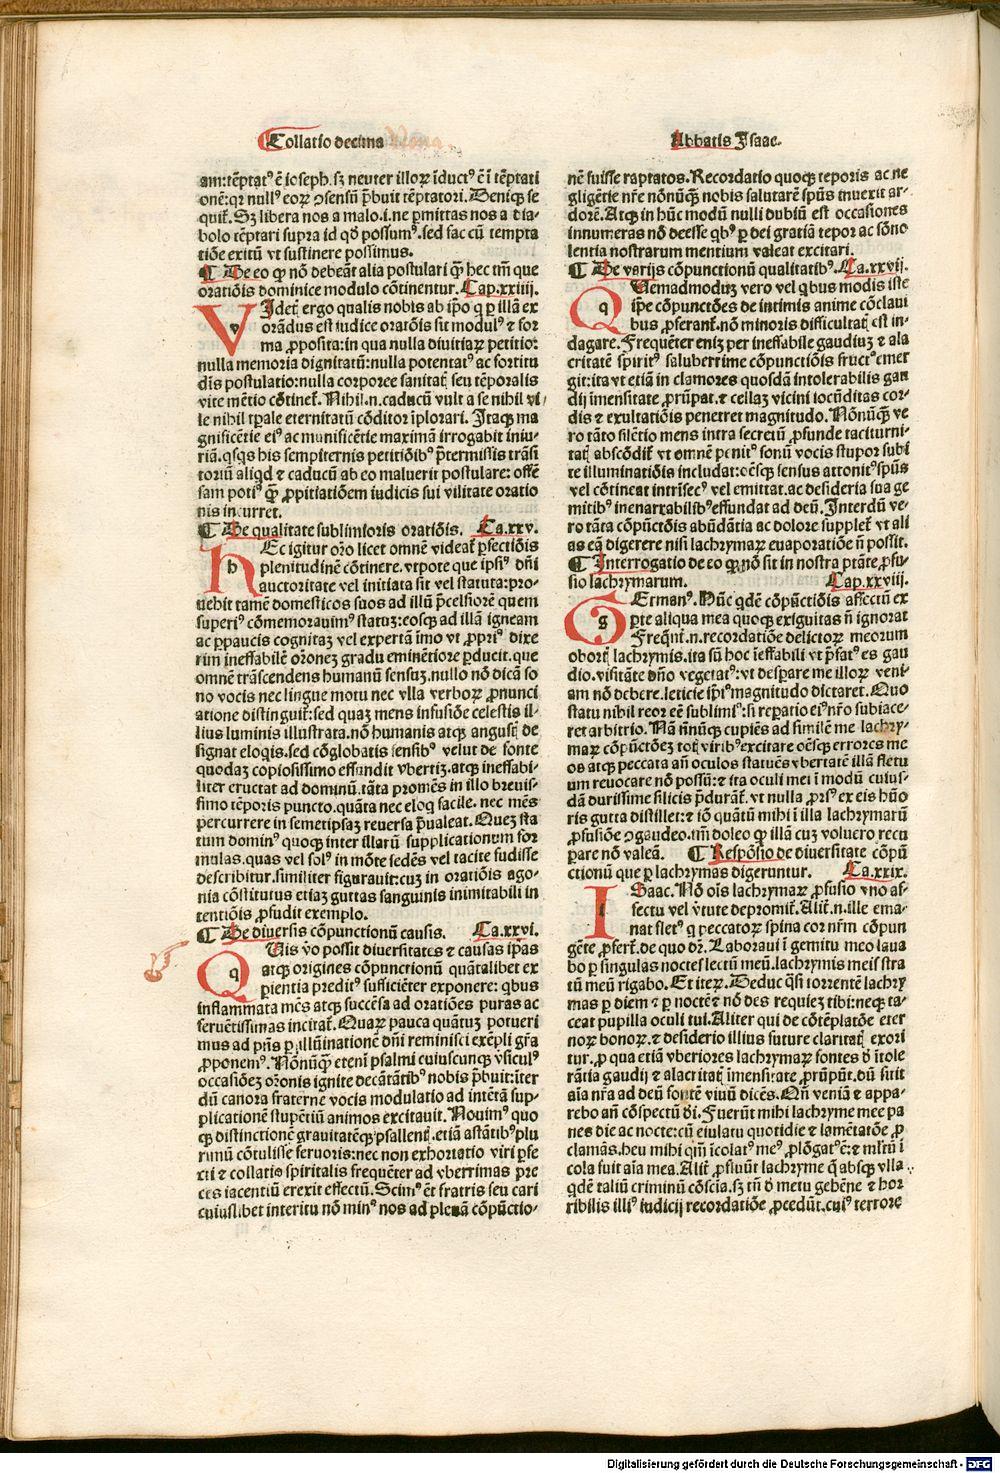 Collatio decima
Abbatis Isaac.
am: tẽptatꝰ ẽ ioseph. sꝫ neuter illoꝝ ĩductꝰ ẽ ĩ tẽptati
onẽ: qꝛ nullꝰ eoꝝ ꝯsensũ p̃buit tẽptatori. Deniqꝫ se
quit᷒. Sꝫ libera nos a malo .i. ne ꝑmittas nos a dia-
bolo tẽptari supra id qđ possumꝰ. sed fac cũ tempta
tiõe exitũ vt sustinere possimus.
¶ De eo ꝙ nõ debeãt alia postulari q̃ꝫ hec tm̃ que
oratiõis dominice modulo cõtinentur. Cap. xxiiij.
VIdet᷒ ergo qualis nobis ab ip̃o q ꝑ illã ex
orãdus est iudice oratõis sit modulꝰ ⁊ for
ma ꝓposita: in qua nulla diuitiaꝝ petitio:
nulla memoria dignitatũ: nulla potentatꝰ ac fortitu
dĩs postulatio: nulla corporee sanitat᷒ seu tẽporalis
vite mẽtio cõtinet᷒. Nihil .n. caducũ vult a se nihil vi
le nihil tꝑale eternitatũ cõditor ĩplorari. Itaqꝫ ma
gnificẽtie eiꝰ ac munificẽtie maximã irrogabit iniu-
riã. qsqs his sempiternis petitiõibꝰ p̃termissis trãsi
toriũ aliqd ⁊ caducũ ab eo maluerit postulare: offẽ
sam potiꝰ q̃ꝫ ꝓpitiatiõem iudicis sui vilitate oratio
nis incurret.
¶ De qualitate sublimioris oratiõis. Ca. xxv.
HEc igitur or̃o licet omnẽ videat᷒ ꝑfectiõis
plenitudinẽ cõtinere. vtpote que ipsiꝰ dñi
auctoritate vel initiata sit vel statuta: pro-
uehit tamẽ domesticos suos ad illũ p̃celsiorẽ quem
superiꝰ cõmemorauimꝰ statuꝫ: eosqꝫ ad illã igneam
ac ꝑpaucis cognitaꝫ vel expertã ĩmo vt ꝓpriꝰ dixe
rim ineffabilẽ or̃oneꝫ gradu eminẽtiore ꝑducit. que
omnẽ trãscendens humanũ sensuꝫ. nullo nõ dicã so
no vocis nec lingue motu nec vlla verboꝝ ꝓnunci
atione distinguit᷒: sed quaꝫ mens infusiõe celestis il-
lius luminis illustrata. nõ humanis atqꝫ angust᷒ de
signat eloqis. sed cõglobatis sensibꝰ velut de fonte
quodaꝫ copiosissimo effundit vbertĩ. atqꝫ ineffabi-
liter eructat ad dominũ. tãta promẽs in illo breuis-
simo tẽporis puncto. quãta nec eloq facile. nec mẽs
percurrere in semetipsaꝫ reuersa p̃ualeat. Queꝫ sta
tum dominꝰ quoqꝫ inter illarũ supplicationum for
mulas. quas vel solꝰ in mõte sedẽs vel tacite fudisse
describitur. similiter figurauit: cuꝫ in oratiõis ago-
nia cõstitutus etiaꝫ guttas sanguinis inimitabili in
tentiõis ꝓfudit exemplo.
¶ De diuersis cõpunctionũ causis. Ca. xxvi.
QUis v̉o possit diuersitates ⁊ causas ip̃as
atqꝫ origines cõpunctionũ quãtalibet ex
ꝑientia preditꝰ sufficiẽter exponere: qbus
inflammata mẽs atqꝫ succẽsa ad oratiões puras ac
feruẽtissimas incitat᷒. Quaꝝ pauca quãtuꝫ potueri
mus ad pñs ꝑ illũinationẽ dñi reminisci exẽpli gr̃a
ꝓponemꝰ. Nõnũq̃ꝫ etenĩ psalmi cuiuscunqꝫ v̉siculꝰ
occasiõeꝫ or̃onis ignite decãtãtibꝰ nobis p̃buit: ĩter
dũ canora fraterne vocis modulatio ad intẽtã sup-
plicationẽ stupẽtiũ animos excitauit. Nouimꝰ quo
qꝫ distinctionẽ grauitatẽqꝫ psallent᷒. etiã astãtibꝰ plu
rimũ cõtulisse feruoris: nec non exhortatio viri ꝑfe
cti ⁊ collatis spiritalis frequẽter ad vberrimas pre
ces iacentiũ erexit effectũ. Scimꝰ et̃ fratris seu cari
cuiuslibet interitu nõ minꝰ nos ad plenã cõpũctio-
nẽ fuisse raptatos. Recordatio quoqꝫ teporis ac ne
gligẽtie nr̃e nõnũq̃ꝫ nobis salutarẽ spũs inuexit ar-
dorẽ. Atqꝫ in hũc modũ nulli dubiũ est occasiones
innumeras nõ deesse qbꝰ ꝑ dei gratiã tepor ac sõno
lentia nostrarum mentium valeat excitari.
¶ De varijs cõpunctionũ qualitatibꝰ. Ca. xxvij.
QUemadmoduꝫ vero vel qbus modis iste
ip̃e cõpunctões de intimis anime cõclaui
bus ꝓferant᷒. nõ minoris difficultat᷒ est in-
dagare. Frequẽter enĩ per ineffabile gaudiuꝫ ⁊ ala
critatẽ spiritꝰ saluberrime cõpunctiõis fructꝰ emer
git: ita vt etiã in clamores quosdã intolerabilis gau
dij imensitate ꝓrũpat. ⁊ cellaꝫ vicini iocũditas cor-
dis ⁊ exultatiõis penetret magnitudo. Nõnũq̃ꝫ ve
ro tãto silẽtio mens intra secretũ ꝓfunde taciturni-
tat᷒ abscõdit᷒ vt omnẽ penitꝰ sonũ vocis stupor subi
te illuminatiõis includat: oẽsqꝫ sensus attonitꝰ spũs
vel cõtineat intrĩsecꝰ vel emittat. ac desideria sua ge
mitibꝰ inenarrabilibꝰ effundat ad deũ. Interdũ ve-
ro tãta cõpũctiõis abũdãtia ac dolore supplet᷒ vt ali
as eã digerere nisi lachrymaꝝ euaporatiõe ñ possit.
¶ Interrogatio de eo ꝙ nõ sit in nostra ptãte ꝓfu-
sio lachrymarum. Cap. xxviij.
GErmanꝰ. Hũc qdẽ cõpũctiõis affectũ ex
ꝑte aliqua mea quoqꝫ exiguitas ñ ignorat
Freq̃nt᷒ .n. recordatiõe delictoꝝ meorum
obort᷒ lachrymis. ita sũ hoc ĩeffabili vt p̃fatꝰ es gau
dio. visitãte dño vegetatꝰ: vt desꝑare me illoꝝ veni-
am nõ debere. leticie ip̃iꝰ magnitudo dictaret. Quo
statu nihil reor eẽ sublimiꝰ: si reꝑatio eiꝰ nr̃o subiace-
ret arbitrio. Nã nñnũqꝫ cupiẽs ad similẽ me lachry-
maꝝ cõpũctõeꝫ totꝭ viribꝰ excitare oẽsqꝫ errores me
os atqꝫ peccata añ oculos statuẽs vbertatẽ illã fletu
um reuocare nõ possũ: ⁊ ita oculi mei ĩ modũ cuius-
dã durissime silicis p̃durãt. vt nulla ꝓrsꝰ ex eis hũo
ris gutta distillet: ⁊ iõ quãtũ mihi ĩ illa lachrymarũ
ꝓfusiõe ꝯgaudeo. tm̃ doleo ꝙ illã cuꝫ voluero recu
ꝑare nõ valeã. ¶ Respõsio de diuersitate cõpũ
ctionũ que ꝑ lachrymas digeruntur. Ca. xxix.
ISaac. Nõ oĩs lachrymaꝝ ꝓfusio vno af-
fectu vel v̉tute depromit᷒. Alit᷒ .n. ille ema-
nat fletꝰ q peccatoꝝ spina cor nr̃m cõpun
gẽte ꝓfert᷒. de quo dr̃. Laboraui ĩ gemitu meo laua
bo ꝑ singulas noctes lectũ meũ. lachrymis meis stra
tũ meũ rigabo. Et iteꝝ. Deduc q̃si torrentẽ lachry
mas ꝑ diem ⁊ ꝑ noctẽ ⁊ nõ des requieꝫ tibi: neqꝫ ta-
ceat pupilla oculi tui. Aliter qui de cõtẽplatõe eter
noꝝ bonoꝝ. ⁊ desiderio illius future claritat᷒ exori
tur. ꝓ qua etiã vberiores lachrymaꝝ fontes õ ĩtole
rãtia gaudij ⁊ alacritat᷒ ĩmensitate ꝓrũpũt. dũ sitit
aĩa nr̃a ad deũ fontẽ viuũ dicẽs. Qñ veniã ⁊ appa-
rebo añ cõspectũ đi. Fuerũt mihi lachryme mee pa
nes die ac nocte: cũ eiulatu quotidie ⁊ lamẽtatõe ꝓ
clamãs. heu mihi qm̃ ĩcolatꝰ meꝰ ꝓlõgatꝰ ẽ: ⁊ mltũ ĩ
cola fuit aĩa mea. Alit᷒ ꝓfluũt lachryme q̃ absqꝫ vlla
qdẽ taliũ criminũ cõscĩa. sꝫ tñ đ metu gehẽne ⁊ hor
ribilis illiꝰ iudicij recordatiõe ꝓcedũt. cuiꝰ terrore
Digitalisierung gefördert durch die Deutsche Forschungsgemeinschaft - DFG